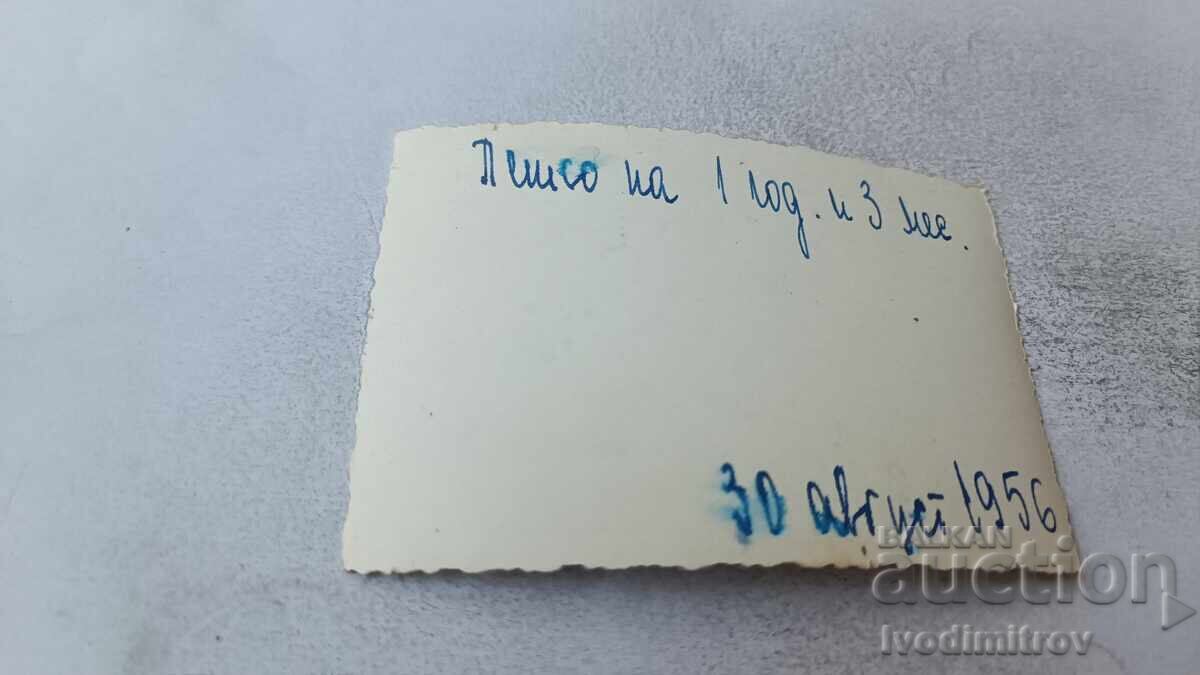 Петко на 1 год. и 3 мес.
30 август 1956
BALKAN
auction
Ivodimitrov